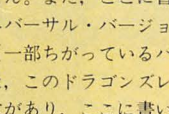 ん。また、ここに書
バーサル・バージョ
一部ちがっているバ
、このドラゴンズレ
があり、ここに書い